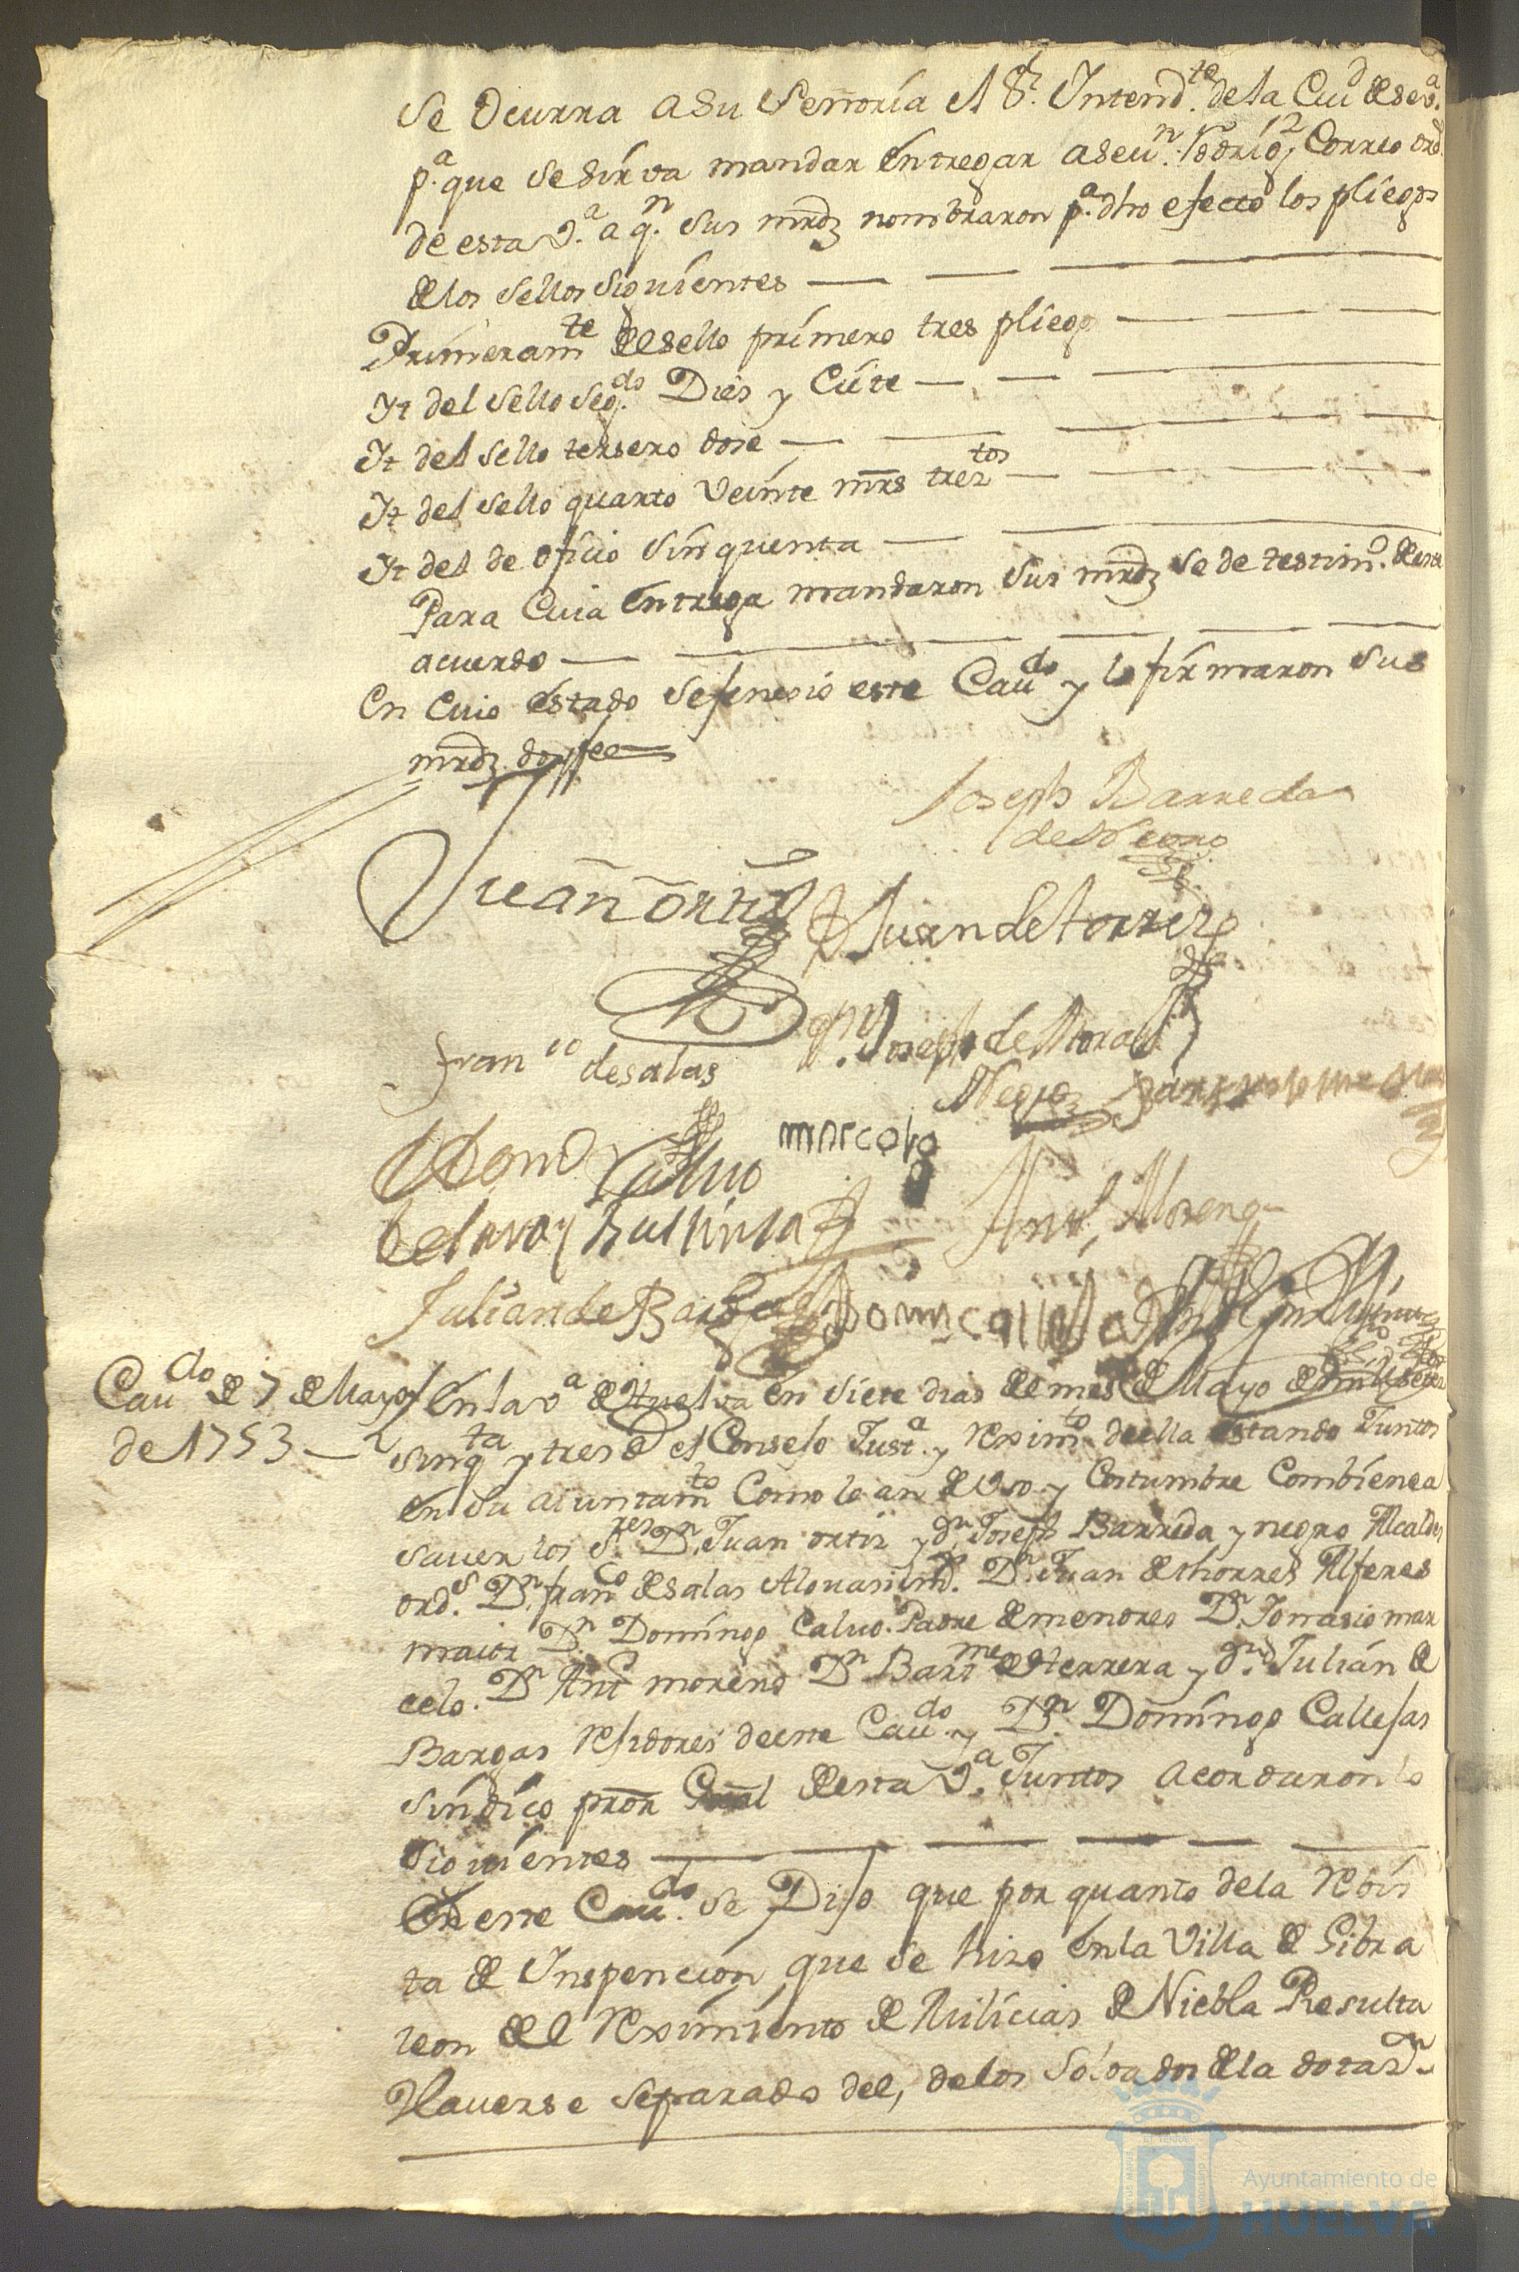 Se Ocurra a Su Señoria el Sr. Intendte. de la Ciud de Seva.
pa. que se sirva mandar entregar a Seun. Rodrigz Correo ord.
de esta Va. a qn. sus mrdz nombraron pa. dho efecto los pliegos
de los sellos siguientes
Primeramte de Sello primero tres pliegos
Yt del Sello Segdo. Dies y Ciete
Yt del Sello tersero dose
Yt del Sello quarto Veinte mrs treztos
Yt del de oficio sinquenta
Para Cuia entrega mandaron Sus mrdz se de testimo. de este
acuerdo
En Cuio estado se fenesio este Caudo y lo firmaron sus
mrdz. doy fee
Joseph Barreda
de Negro
Juan Ortiz
Juan de torrez
Joseph de Moral
Franco de salas
Negro
marcelo
Domo Calvo
Antto. Moreno
Julian de Bargas
Domco calleja
Caudo de 7 de Mayo
de 1753
En la va de Huelva en siete dias del mes de Mayo de mil setes
sinqta y tres el Conselo Justa. y Reximto de ella estando Juntos
en su aiuntamto Como lo an de Uso y Costumbre Combiene a
saver los Sres. Dn. Juan ortiz y dn. Joseph Barreda y negro Alcaldes
ords. Dn. franco de salas Alguasil mr. Dn. Juan de thorres Alferes
maior Dn Domingo Calvo Padre de menores Dn. Ignasio mar
celo. Dn Anto moreno Dn Barme de Herrera y dn. Julián de
Bargas Residores de este Caudo y Dn. Domingo Callejas
síndico pror Gral de esta Va. Juntos acordaron lo
siguientes
En este Caudo. se Dijo que por quanto de la Rebis
ta de Inspencion que se hizo en la Villa de Gibra
leon del Reximiento de Milicias de Niebla Resulta
Haverse separado del, de los soldados de la dotazn
Ayuntamiento de
HUELVA